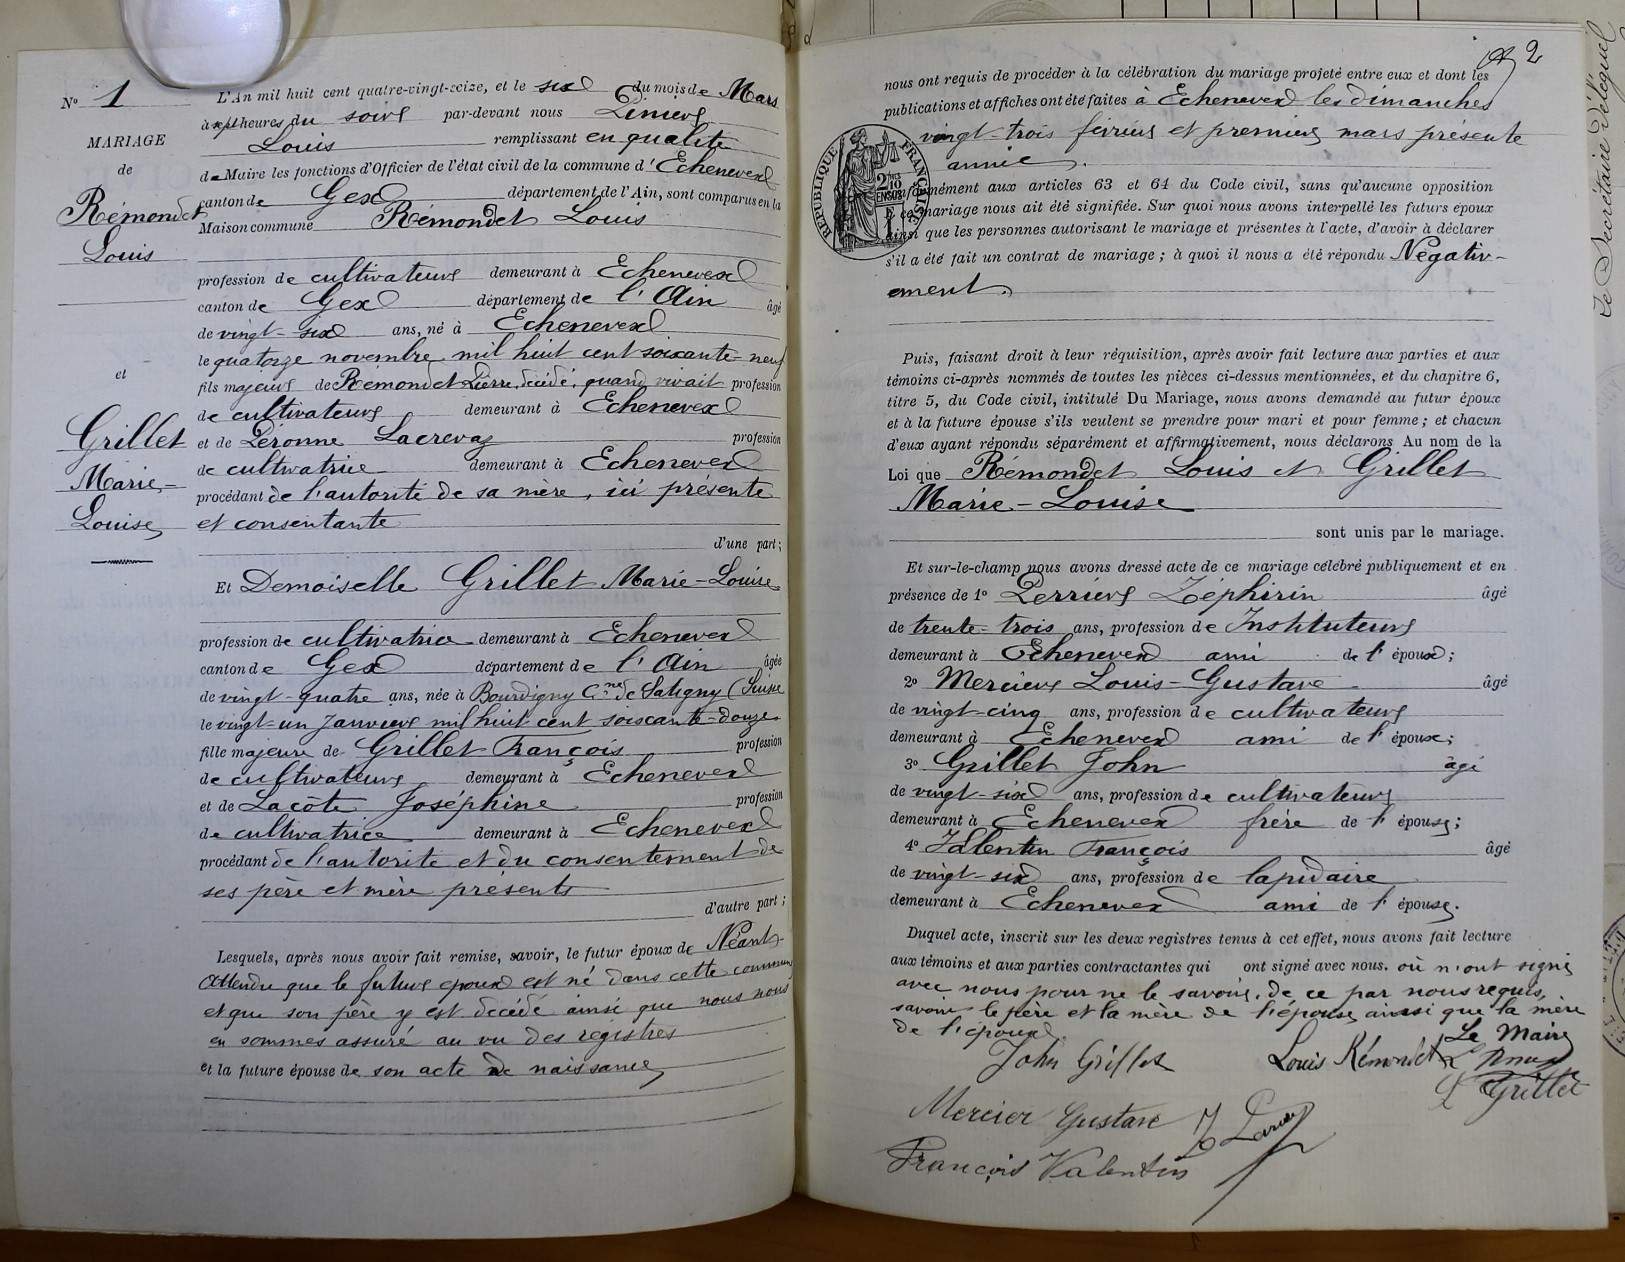 N° 1
MARIAGE
de
Rémondet
Louis
et
Grillet
Marie-
Louise
L'An mil huit cent quatre-vingt-seize, et le six du mois de Mars
à sept heures du soir par-devant nous
Louis remplissant en qualité
de Maire les fonctions d'Officier de l'état civil de la commune d'Echenevex
canton de Gex département de l'Ain, sont comparus en la
Maison commune Rémondet Louis
profession de cultivateur demeurant à Echenevex
canton de Gex département de l'Ain âgé
de vingt-six ans, né à Echenevex
le quatorze novembre mil huit cent soixante-neuf
fils majeur de Rémondet Pierre, décédé, quand vivait profession
de cultivateur demeurant à Echenevex
et de Péronne Lacrevaz profession
de cultivatrice demeurant à Echenevex
procédant de l'autorité de sa mère, ici présente
et consentante
d'une part;
Et Demoiselle Grillet Marie-Louise
profession de cultivatrice demeurant à Echenevex
canton de Gex département de l'Ain âgée
de vingt-quatre ans, née à Bourdigny Cne de Satigny (Suisse
le vingt-un Janvier mil huit cent soixante-douze
fille majeure de Grillet François profession
de cultivateur demeurant à Echenevex
et de Lacôte Joséphine profession
de cultivatrice demeurant à Echenevex
procédant de l'autorité et du consentement de
ses père et mère présents
d'autre part;
Lesquels, après nous avoir fait remise, savoir, le futur époux de Néant
Attendu que le futur époux est né dans cette commune
et que son père y est décédé ainsi que nous nous
en sommes assuré au vu des registres
et la future épouse de son acte de naissance
2
nous ont requis de procéder à la célébration du mariage projeté entre eux et dont les
publications et affiches ont été faites à Echenevex les dimanches
vingt-trois février et premier mars présente
année.
RÉPUBLIQUE FRANÇAISE
Conformément aux articles 63 et 64 du Code civil, sans qu'aucune opposition
à ce mariage nous ait été signifiée. Sur quoi nous avons interpellé les futurs époux
ainsi que les personnes autorisant le mariage et présentes à l'acte, d'avoir à déclarer
s'il a été fait un contrat de mariage; à quoi il nous a été répondu Négativ-
ement.
Puis, faisant droit à leur réquisition, après avoir fait lecture aux parties et aux
témoins ci-après nommés de toutes les pièces ci-dessus mentionnées, et du chapitre 6,
titre 5, du Code civil, intitulé Du Mariage, nous avons demandé au futur époux
et à la future épouse s'ils veulent se prendre pour mari et pour femme; et chacun
d'eux ayant répondu séparément et affirmativement, nous déclarons Au nom de la
Loi que Rémondet Louis et Grillet
Marie-Louise
sont unis par le mariage.
Et sur-le-champ nous avons dressé acte de ce mariage célébré publiquement et en
présence de 1° Perrier Zéphirin âgé
de trente-trois ans, profession de Instituteur
demeurant à Echenevex ami de l'époux;
2° Mercier Louis-Gustave âgé
de vingt-cinq ans, profession de cultivateur
demeurant à Echenevex ami de l'époux;
3° Grillet John âgé
de vingt-six ans, profession de cultivateur
demeurant à Echenevex frère de l'épouse;
4° Valentin François âgé
de vingt-six ans, profession de lapidaire
demeurant à Echenevex ami de l'épouse.
Duquel acte, inscrit sur les deux registres tenus à cet effet, nous avons fait lecture
aux témoins et aux parties contractantes qui ont signé avec nous. où n'ont signé
avec nous pour ne le savoir, de ce par nous requis,
savoir le père et la mère de l'épouse ainsi que la mère
de l'époux.
Le Maire
John Grillet Louis Rémondet
L Grillet
Mercier Gustave
François Valentin
Le Secrétaire Délégué